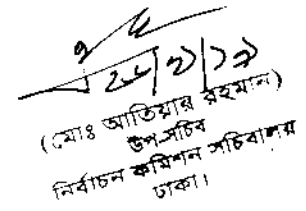 (মোঃ আতিয়ার রহমান)
উপ-সচিব
নির্বাচন কমিশন সচিবালয়
ঢাকা।